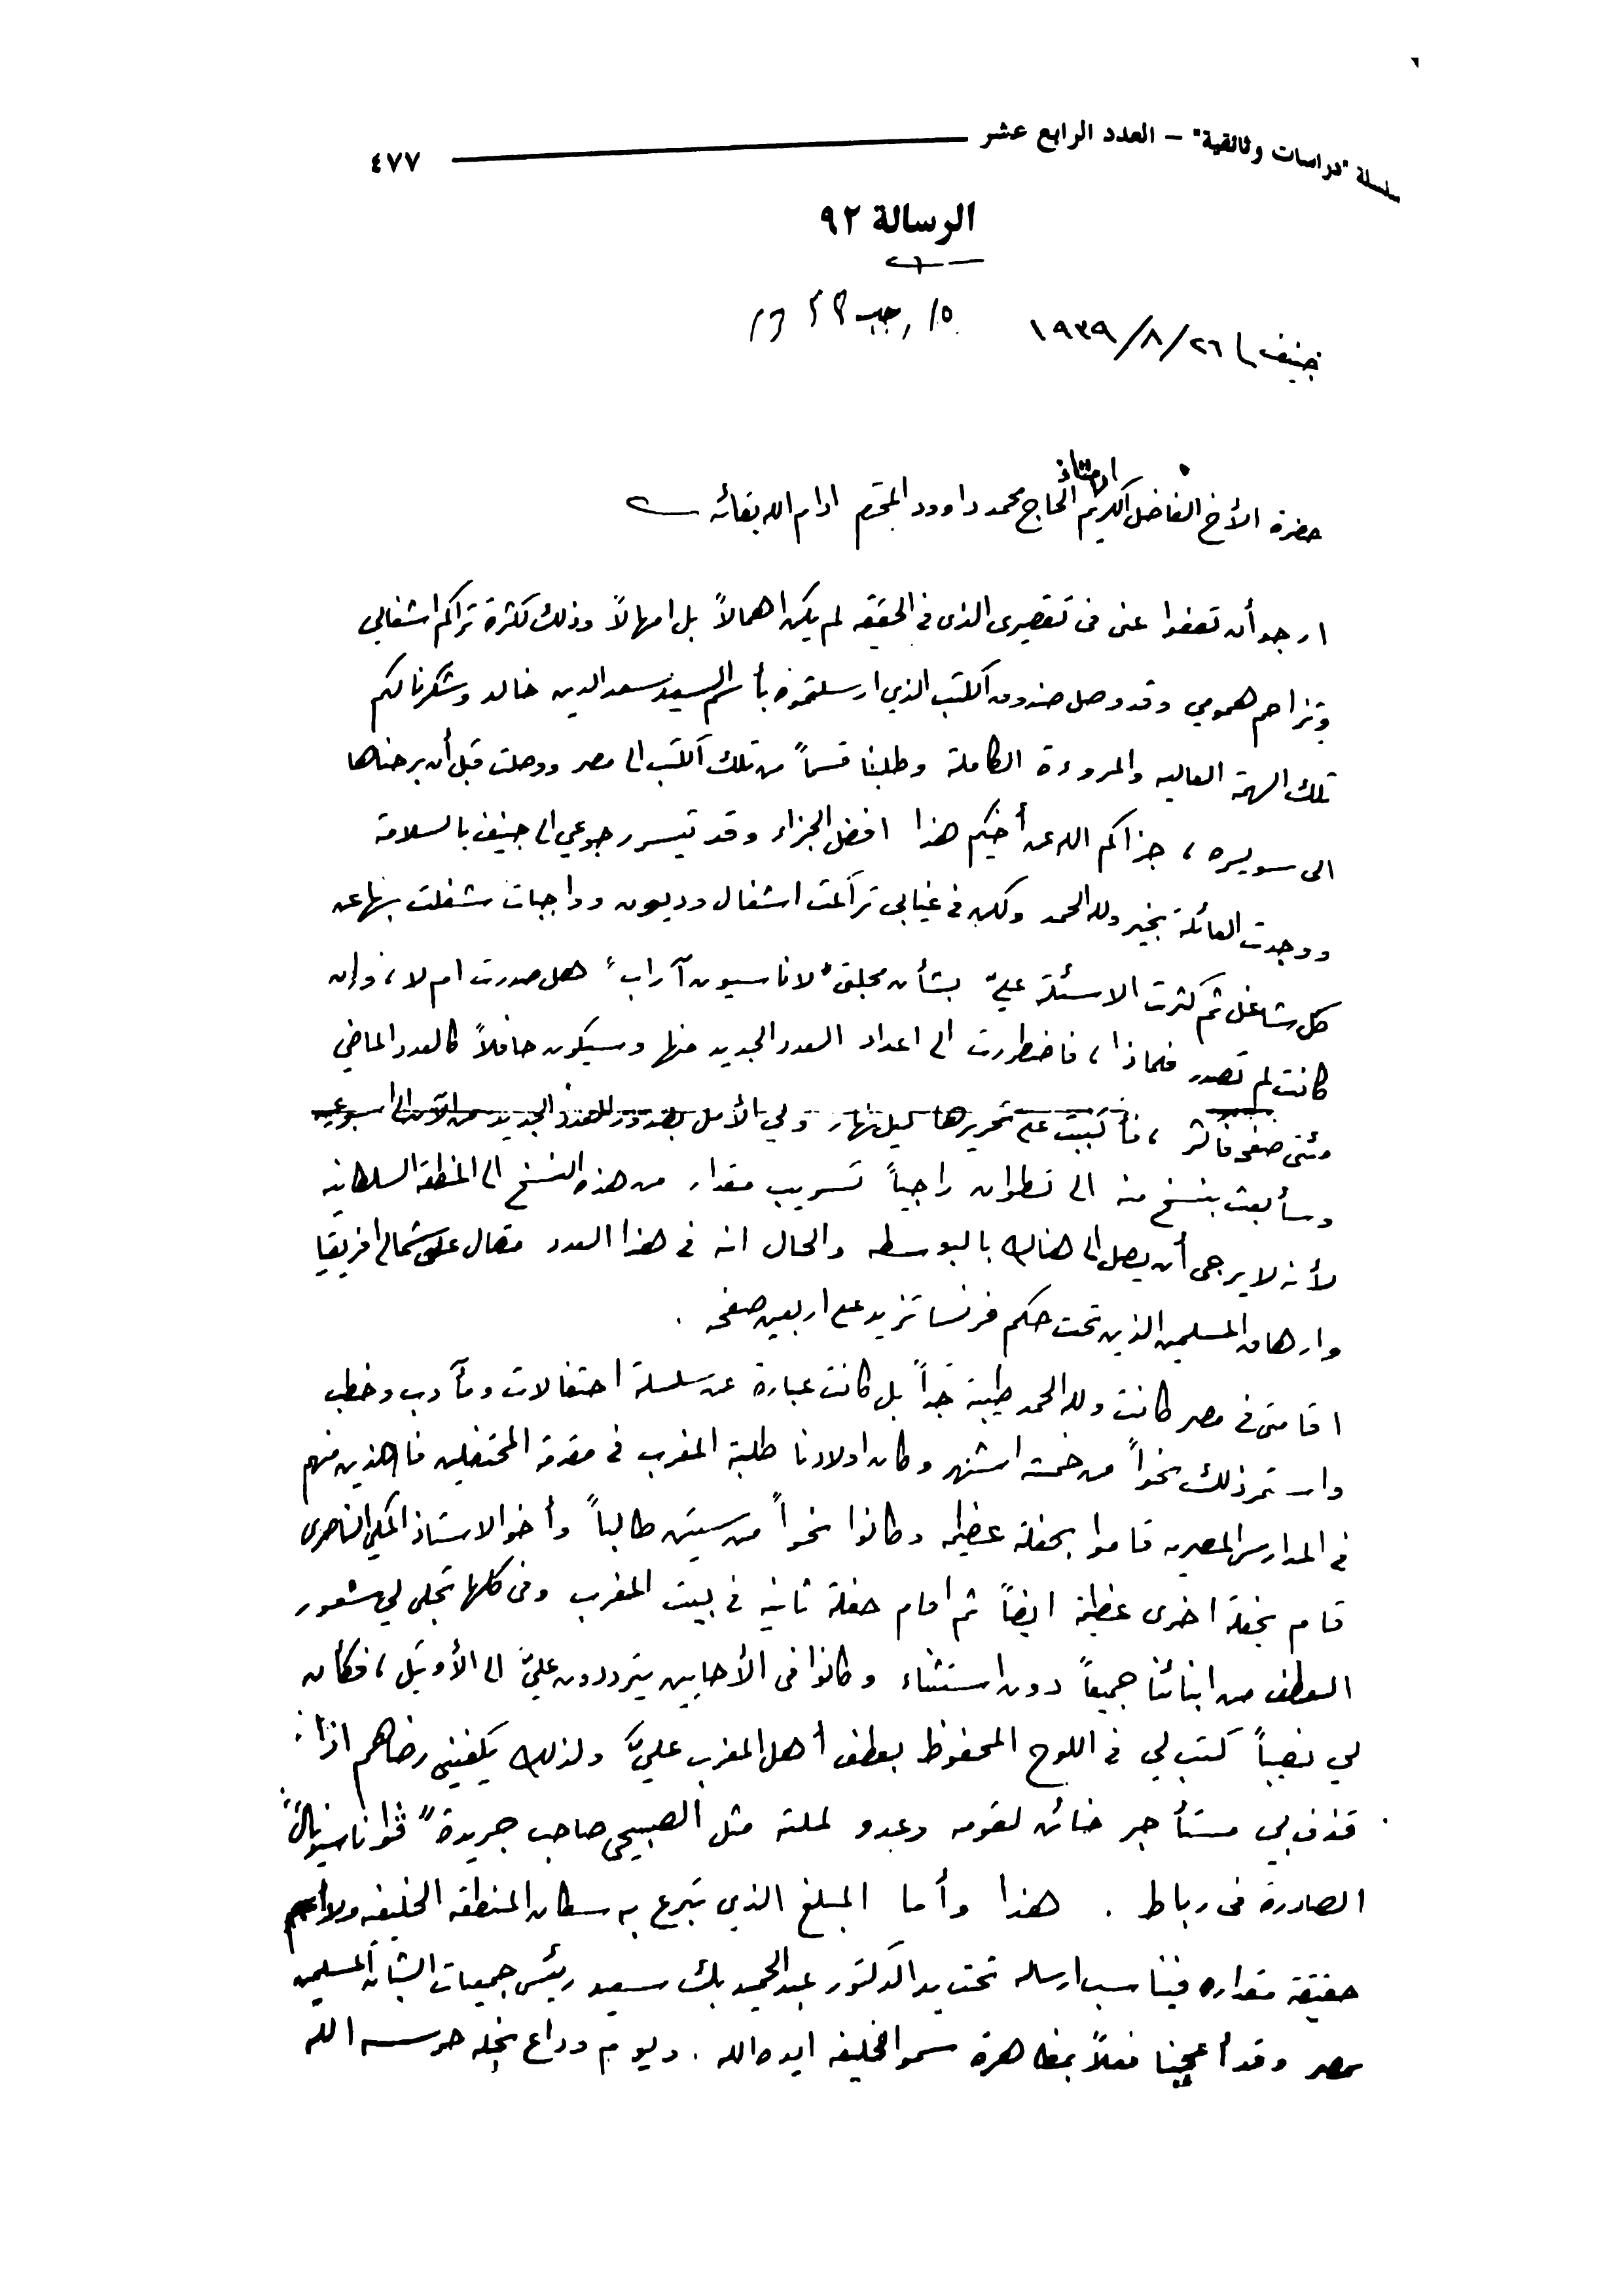 سلسلة "دراسات وثائقية" – العدد الرابع عشر ٤٧٧
الرسالة ٩٢
جنيف ٢٦/٨/١٩٣٩ ١٥ رجب
الاستاذ
حضرة الأخ الفاضل الكريم الحاج محمد داوود المحترم ادام الله بقائه
ارجو أن تعفوا عنى فى تقصيرى الذى فى الحقيقه لم يكن اهمالاً بل امهالاً وذلك لكثرة تراكم اشغالي
وتزاحم همومي وقد وصل صندوق الكتب الذي ارسلتموه بأسم السيد سعد الدين خالد وشكرنا لكم
تلك الهمة العاليه والمروءة الكاملة وطلبنا قسماً من تلك الكتب الى مصر ووصلت قبل أن برحناها
الى سويسره، جزاكم الله عن أخيكم هذا افضل الجزاء وقد تيسر رجوعي الى جنيف بالسلامة
ووجدت العائلة بخير ولله الحمد ولكن فى غيابى تراكمت اشغال وديون وواجبات شغلت بها عن
كل شاغل ثم كثرت الاسئلة عليّ بشأن مجلتى "لاناسيون آراب" هل صدرت ام لا، وإن
كانت لم تصدر فلماذا، فاضطررت الى اعداد العدد الجديد منها وسيكون حافلاً كالعدد الماضي
مئتى صفحه فأكثر، فأكببت على تحريرها ليل نهار ولي الأمل بصدور العدد الجديد من الآن الى اسبوعين
وسأبعث بنسخ منه الى تطوان راجياً تسريب مقدار من هذه النسخ الى المنطقة السلطانيه
لأنه لا يرجى أن يصل الى هناك بالبوسطه والحال انه فى هذا العدد مقال على شمالي افريقيا
وارهاق المسلمين الذين تحت حكم فرنسا تزيد على اربعين صفحه .
اقامتى فى مصر كانت ولله الحمد طيبة جداً بل كانت عبارة عن سلسلة احتفالات ومآدب وخطب
واستمر ذلك نحواً من خمسة اشهر وكان اولادنا طلبة المغرب فى مقدمة المحتفلين فالذين منهم
فى المدارس المصريه قاموا بحفلة عظيمه وكانوا نحواً من ستين طالباً وأخو الاستاذ المكي الناصرى
قام بحفلة اخرى عظيمة ايضاً ثم اقام حفلة ثانيه فى بيت المغرب وفى كلها تجلى لي شعور
العطف من ابنائنا جميعاً دون استثناء وكانوا فى الأحايين يترددون عليّ الى الأوتيل، فكأن
لي نصيباً كتب لي فى اللوح المحفوظ بعطف أهل المغرب عليّ ولذلك يكفيني رضاهم اذا
قذف بي مستأجر خائن لقومه وعدو لملته مثل الصبيحي صاحب جريدة "ڤوا ناسيونال"
الصادرة فى رباط . هذا وأما المبلغ الذي تبرع به سكان المنطقه الخليفيه ولا اعلم
حقيقة مقداره فيناسب ارساله تحت يد الدكتور عبد الحميد بك سعيد رئيس جمعيات الشبان المسلمين
بمصر وقد أعجبنا فعلاً بمظاهرة سمو الخليفه ايده الله . ويوم وداع نجله حرسه الله